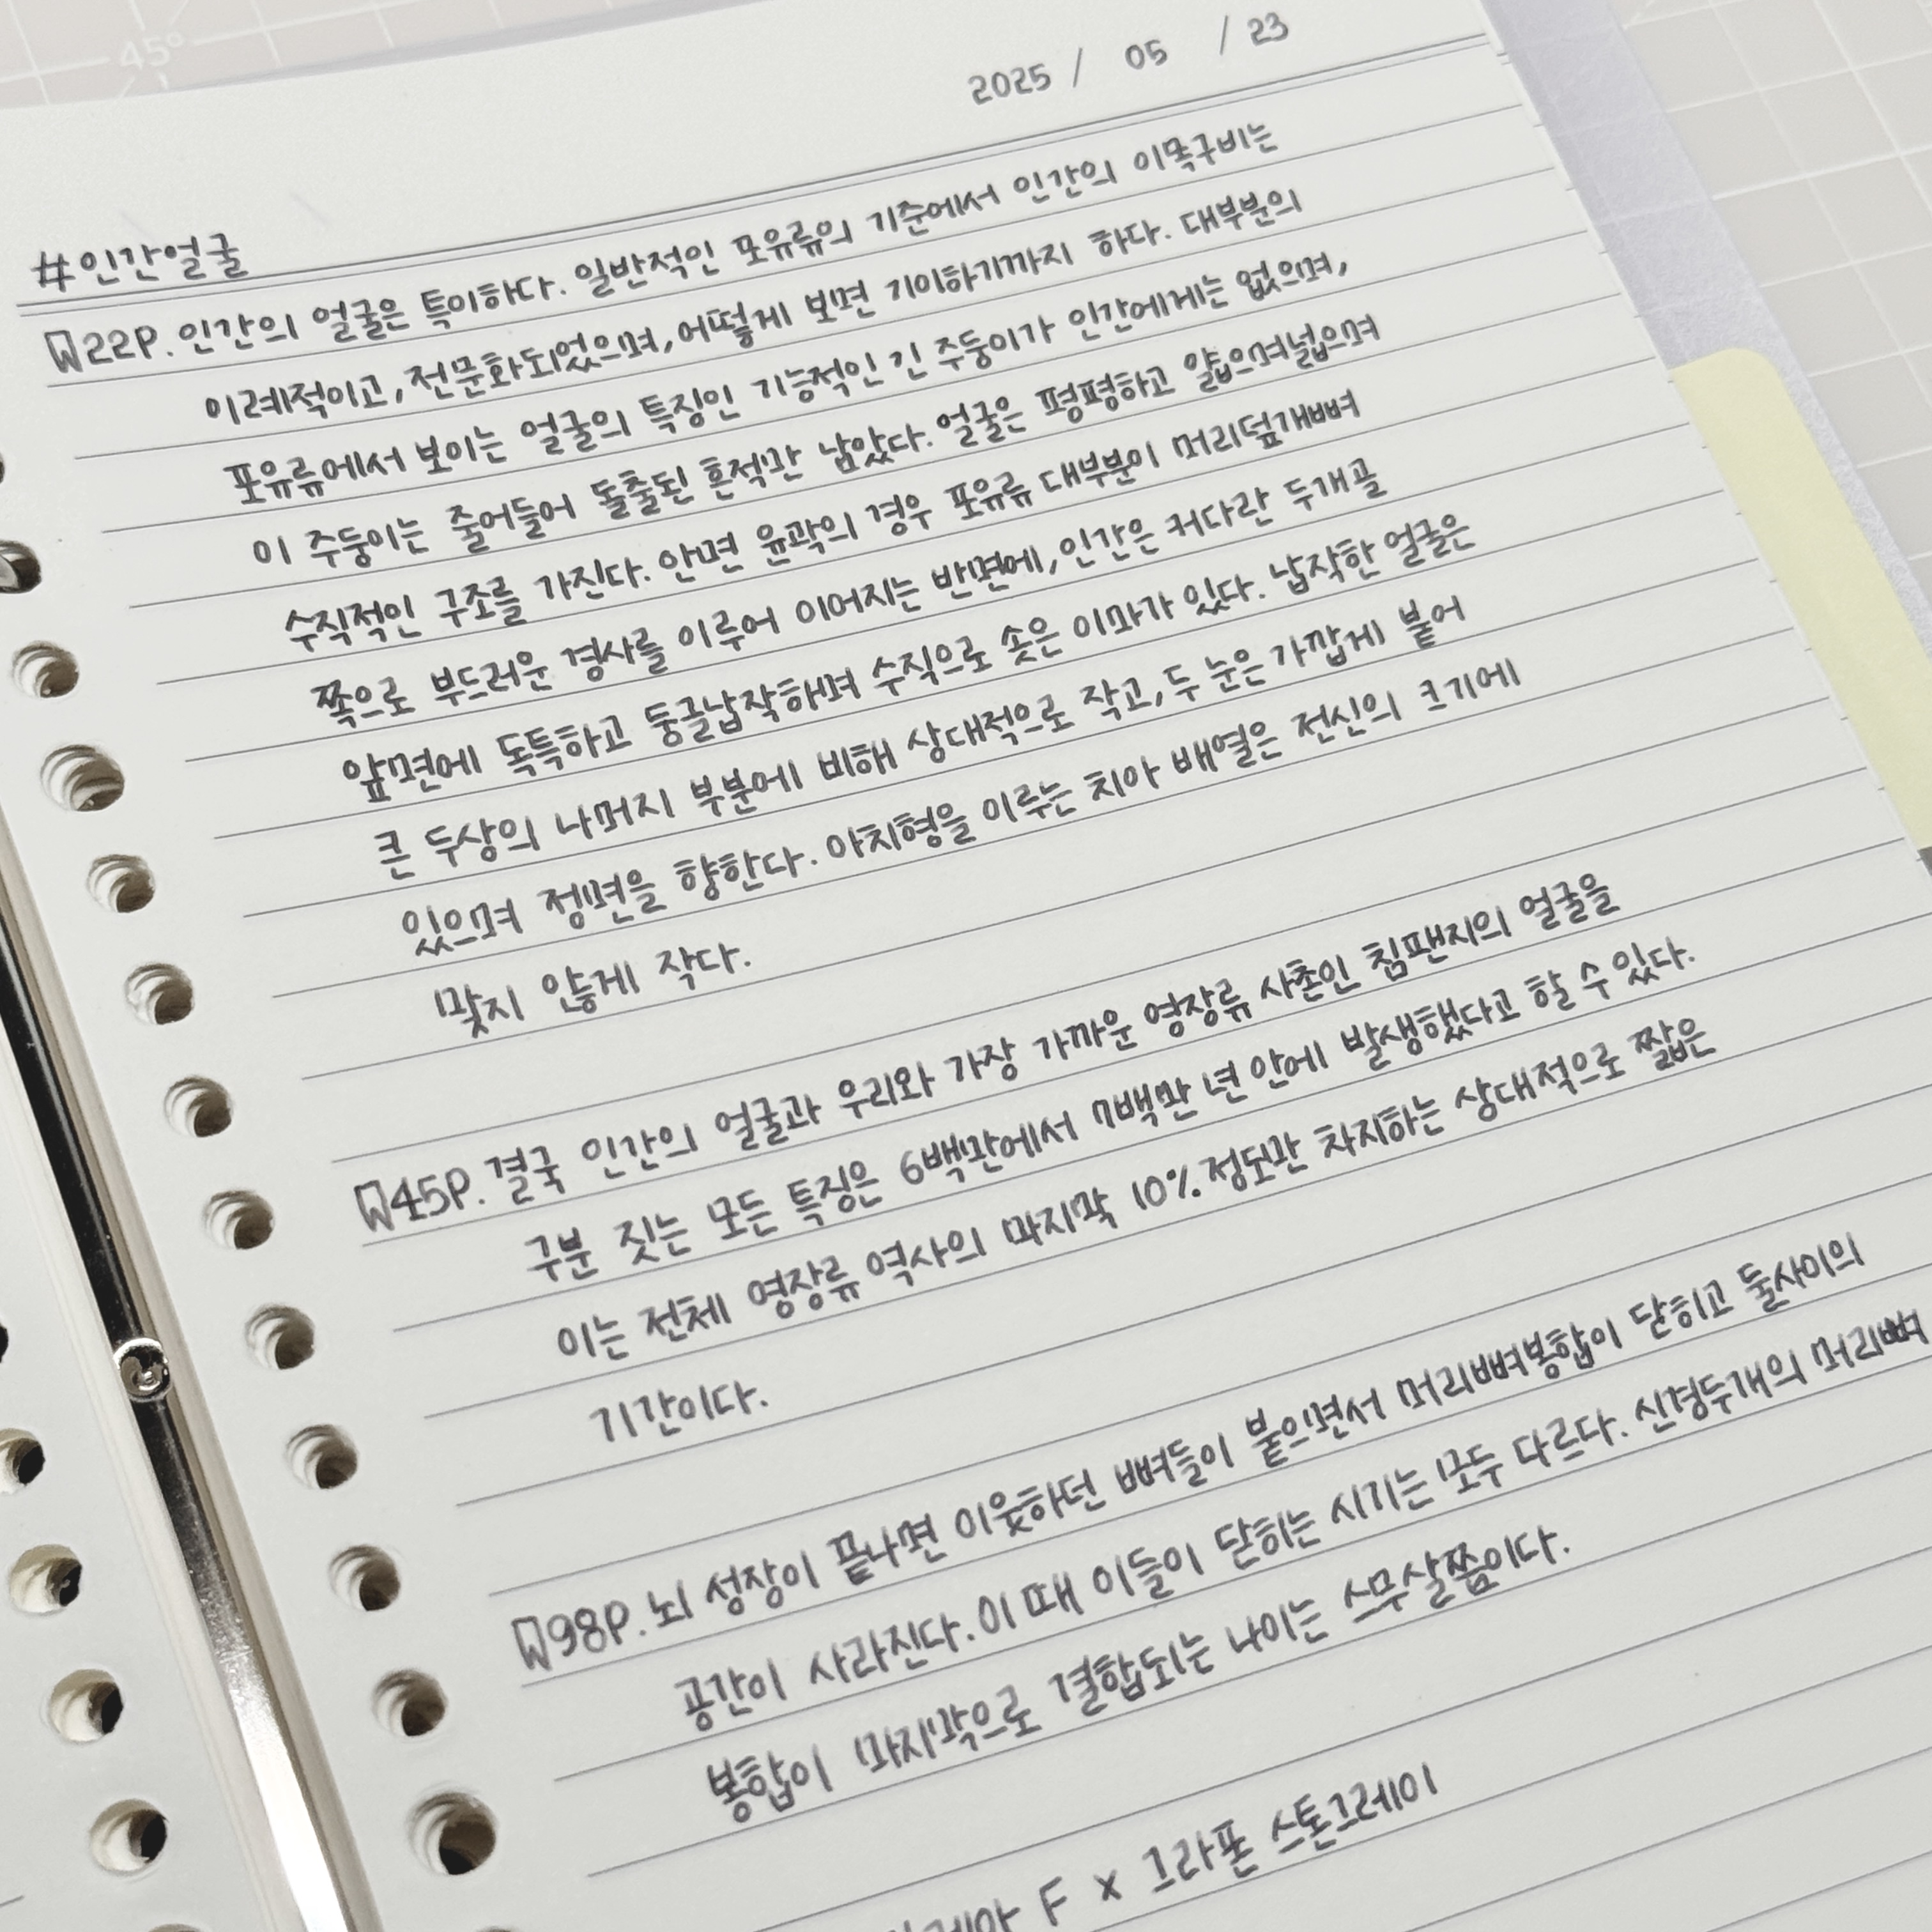 45°
2025 / 05 / 23
#인간얼굴
22P. 인간의 얼굴은 특이하다. 일반적인 포유류의 기준에서 인간의 이목구비는
이례적이고, 전문화되었으며, 어떻게 보면 기이하기까지 하다. 대부분의
포유류에서 보이는 얼굴의 특징인 기능적인 긴 주둥이가 인간에게는 없으며,
이 주둥이는 줄어들어 돌출된 흔적만 남았다. 얼굴은 평평하고 얇으며넓으며
수직적인 구조를 가진다. 안면 윤곽의 경우 포유류 대부분이 머리덮개뼈
쪽으로 부드러운 경사를 이루어 이어지는 반면에, 인간은 커다란 두개골
앞면에 독특하고 둥글납작하며 수직으로 솟은 이마가 있다. 납작한 얼굴은
큰 두상의 나머지 부분에 비해 상대적으로 작고, 두 눈은 가깝게 붙어
있으며 정면을 향한다. 아치형을 이루는 치아 배열은 전신의 크기에
맞지 않게 작다.
45P. 결국 인간의 얼굴과 우리와 가장 가까운 영장류 사촌인 침팬지의 얼굴을
구분 짓는 모든 특징은 6백만에서 7백만 년 안에 발생했다고 할 수 있다.
이는 전체 영장류 역사의 마지막 10% 정도만 차지하는 상대적으로 짧은
기간이다.
98P. 뇌 성장이 끝나면 이웃하던 뼈들이 붙으면서 머리뼈봉합이 닫히고 둘사이의
공간이 사라진다. 이 때 이들이 닫히는 시기는 모두 다르다. 신경두개의 머리뼈
봉합이 마지막으로 결합되는 나이는 스무살쯤이다.
F x 그라폰 스톤그레이